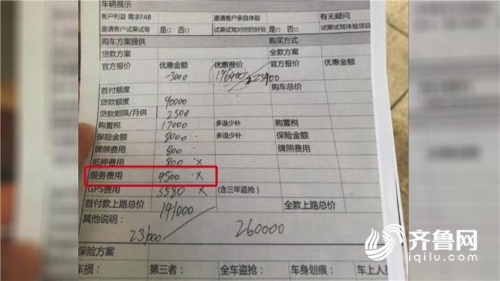 车辆展示
客户利益 需求FAB 邀请客户亲自体验 有无疑问
邀请试乘试驾 是□ 否□ 试乘试驾对你的好处 是□ 否□ 试乘试驾体验项目
购车方案提供 购买方式
贷款方案 全款方案
官方报价 优惠金额 优惠报价 官方报价 优惠金额
-3000 223900
首付额度 购车总价
贷款额度 90000
贷款期限/月供 2500
购置税 17000 多退少补 购置税
保险金额 8000 多退少补 保险金额
牌照费用 800 牌照费用
抵押费用 800 ×
服务费用 4500 ×
GPS费用 3580 × (含三年盗抢)
首付款上路总价 141000 全款上路总价
其他说明: 260000
231000
保险方案
车损: 第三者: 全车盗抢: 车身划痕: 车上人
齐鲁网
iqilu.com